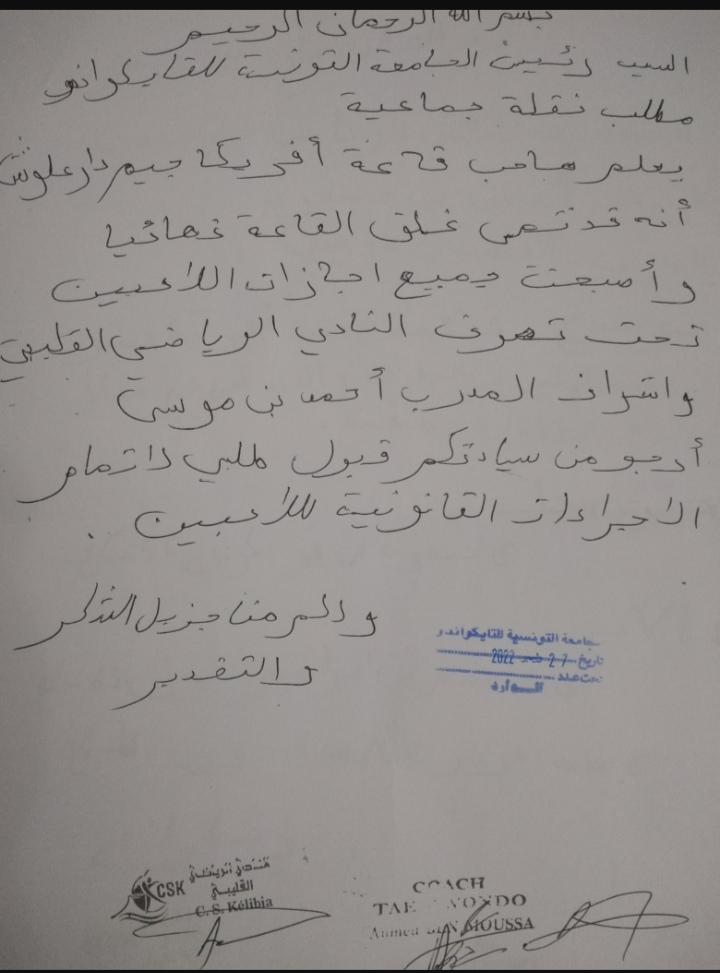 بسم الله الرحمان الرحيم
السيد رئيس الجامعة التونسية للتايكوانو
مطلب نقلة جماعية
يعلم صاحب قاعة أفريكا جيم دار علوش
أنه قد تم غلق القاعة نهائيا
وأصبحت جميع اجازات اللاعبين
تحت تصرف النادي الرياضي القليبي
واشراف المدرب أحمد بن موسى
أرجو من سيادتكم قبول طلبي لاتمام
الاجراءات القانونية للاعبين .
ولكم منا جزيل الشكر
والتقدير
جامعة التونسية للتايكواندو
تاريخ 27 2022
تحت عدد
الوارد
CSK
القليبي
C. S. Kélibia
COACH
MOUSSA